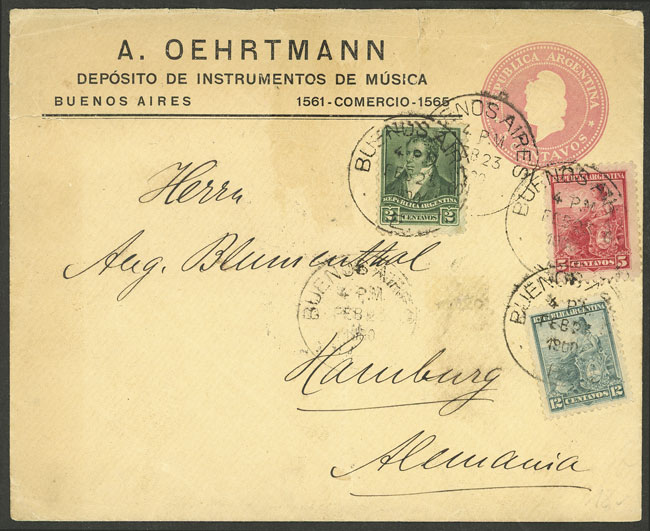 A. OEHRTMANN
DEPÓSITO DE INSTRUMENTOS DE MÚSICA
BUENOS AIRES 1561-COMERCIO-1565
REPUBLICA ARGENTINA
CENTAVOS
BUENOS AIRES
4 P.M.
FEB 23
REPUBLICA ARGENTINA
2 CENTAVOS 2
BUENOS AIRES
4 P.M.
REPUBLICA ARGENTINA
5 CENTAVOS 5
Herrn
Aug. Blumenthal
BUENOS AIRES
4 P.M.
FEB
1900
BUENOS AIRES
FEB 23
1900
REPUBLICA ARGENTINA
12 CENTAVOS 12
Hamburg
Alemania